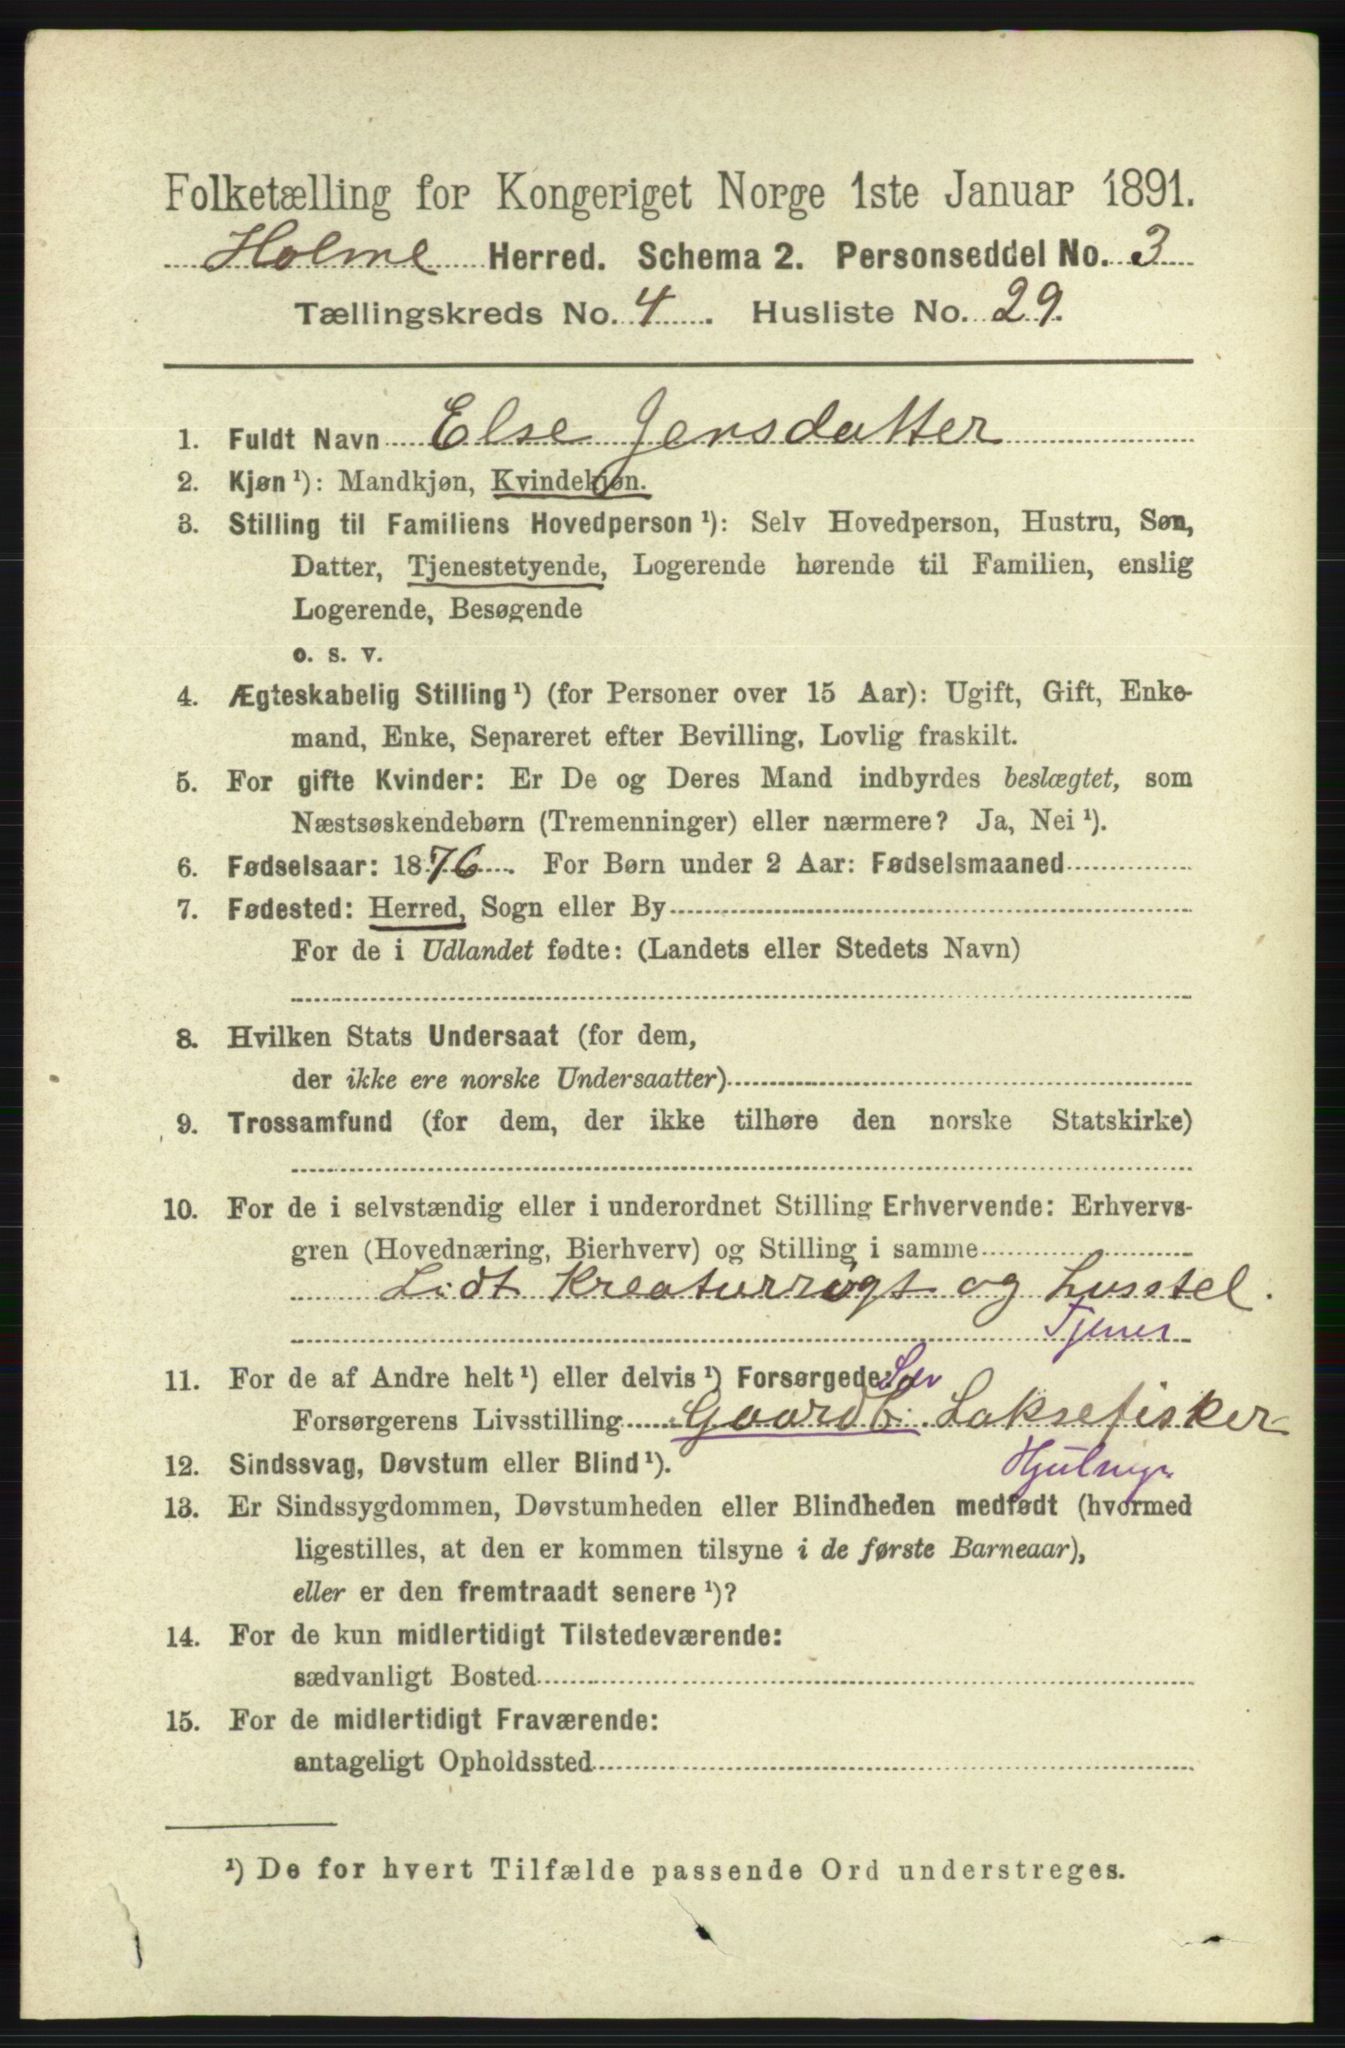 Folketælling for Kongeriget Norge 1ste Januar 1891.
Holme Herred. Schema 2. Personseddel No. 3
Tællingskreds No. 4. Husliste No. 29.
1. Fuldt Navn Else Jensdatter
2. Kjøn ¹): Mandkjøn, Kvindekjøn.
3. Stilling til Familiens Hovedperson ¹): Selv Hovedperson, Hustru, Søn,
Datter, Tjenestetyende, Logerende hørende til Familien, enslig
Logerende, Besøgende
o. s. v.
4. Ægteskabelig Stilling ¹) (for Personer over 15 Aar): Ugift, Gift, Enke-
mand, Enke, Separeret efter Bevilling, Lovlig fraskilt.
5. For gifte Kvinder: Er De og Deres Mand indbyrdes beslægtet, som
Næstsøskendebørn (Tremenninger) eller nærmere? Ja, Nei ¹).
6. Fødselsaar: 1876. For Børn under 2 Aar: Fødselsmaaned
7. Fødested: Herred, Sogn eller By
For de i Udlandet fødte: (Landets eller Stedets Navn)
8. Hvilken Stats Undersaat (for dem,
der ikke ere norske Undersaatter)
9. Trossamfund (for dem, der ikke tilhøre den norske Statskirke)
10. For de i selvstændig eller i underordnet Stilling Erhvervende: Erhvervs-
gren (Hovednæring, Bierhverv) og Stilling i samme
Lidt Kreaturrøgt og husstel.
Tjener
11. For de af Andre helt ¹) eller delvis ¹) Forsørgede:
Forsørgerens Livsstilling Gaardb. Laksefisker
12. Sindssvag, Døvstum eller Blind ¹).
13. Er Sindssygdommen, Døvstumheden eller Blindheden medfødt (hvormed
ligestilles, at den er kommen tilsyne i de første Barneaar),
eller er den fremtraadt senere ¹)?
14. For de kun midlertidigt Tilstedeværende:
sædvanligt Bosted
15. For de midlertidigt Fraværende:
antageligt Opholdssted
¹) De for hvert Tilfælde passende Ord understreges.